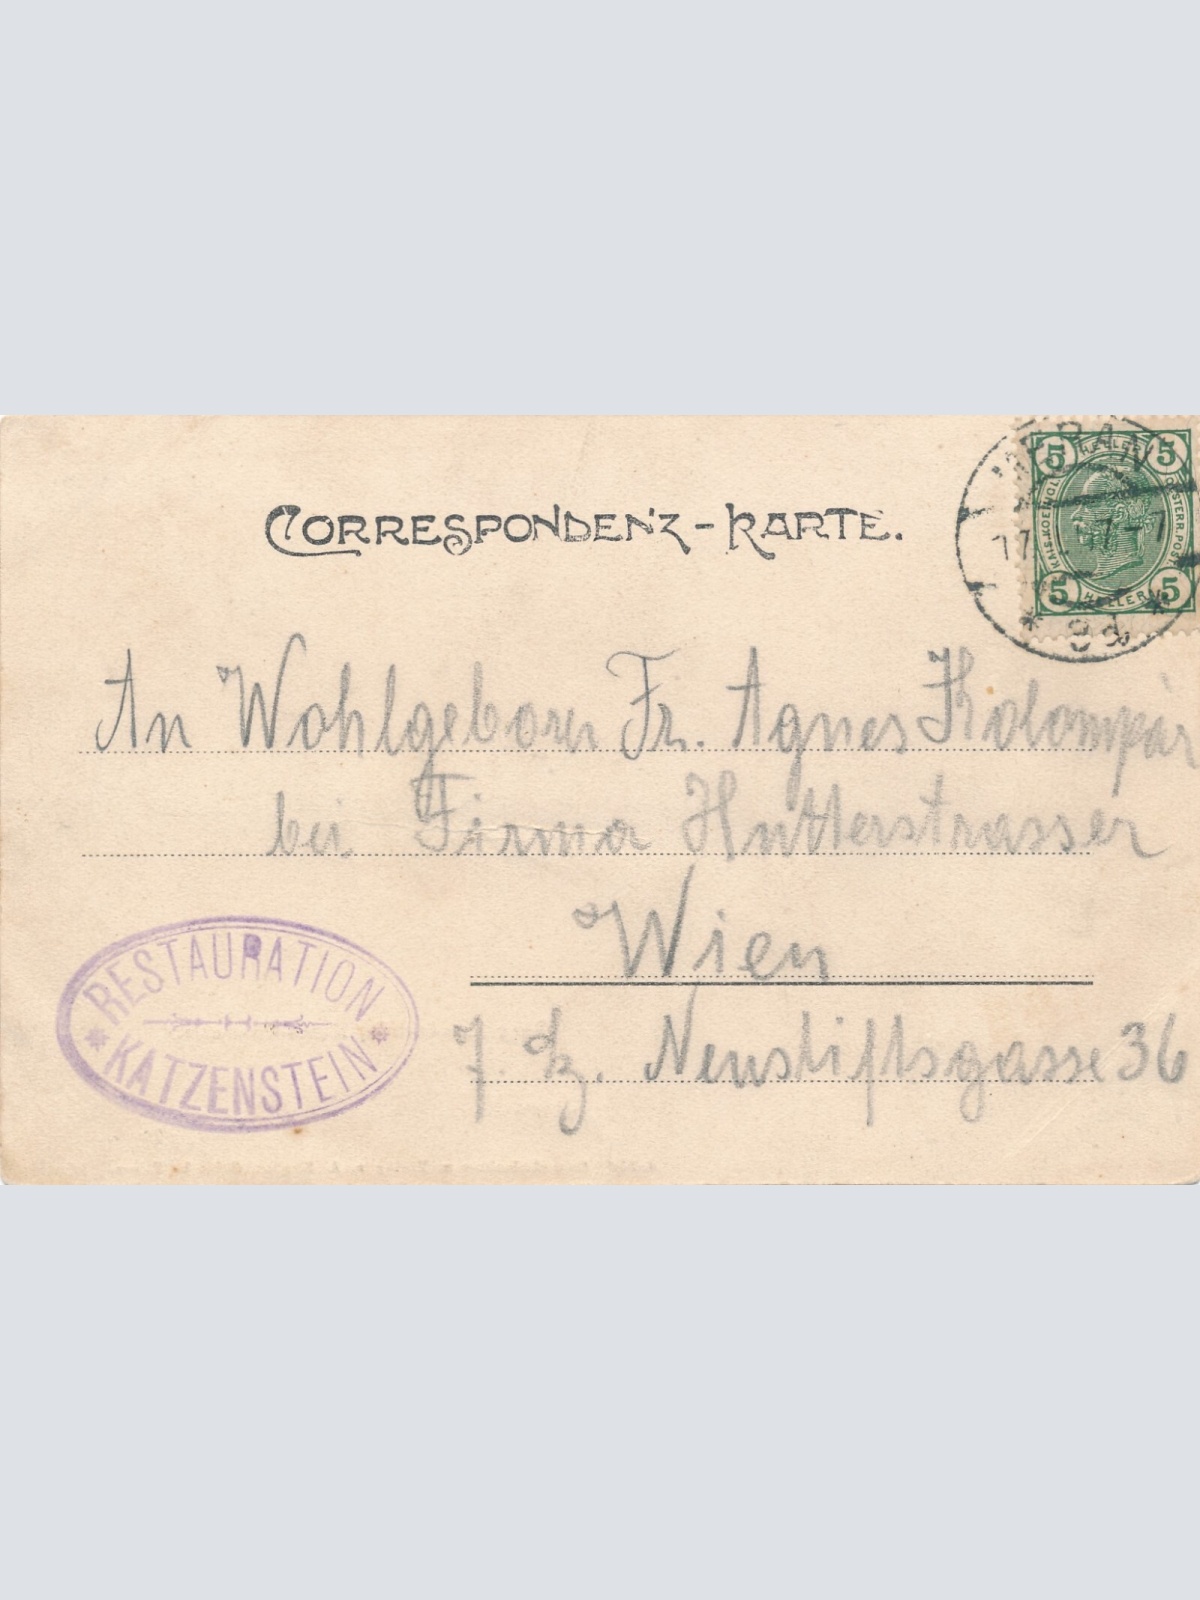 CORRESPONDENZ-KARTE.
MERAN
17. 7-7
* 9d *
5 HELLER 5
KAIS. KOENIGL. OESTERR. POST
5 HELLER 5
An Wohlgeboren Fr. Agnes Kolompár
bei Firma Hutterstrasser
Wien
7. Bz. Neustiftsgasse 36
RESTAURATION
* KATZENSTEIN *